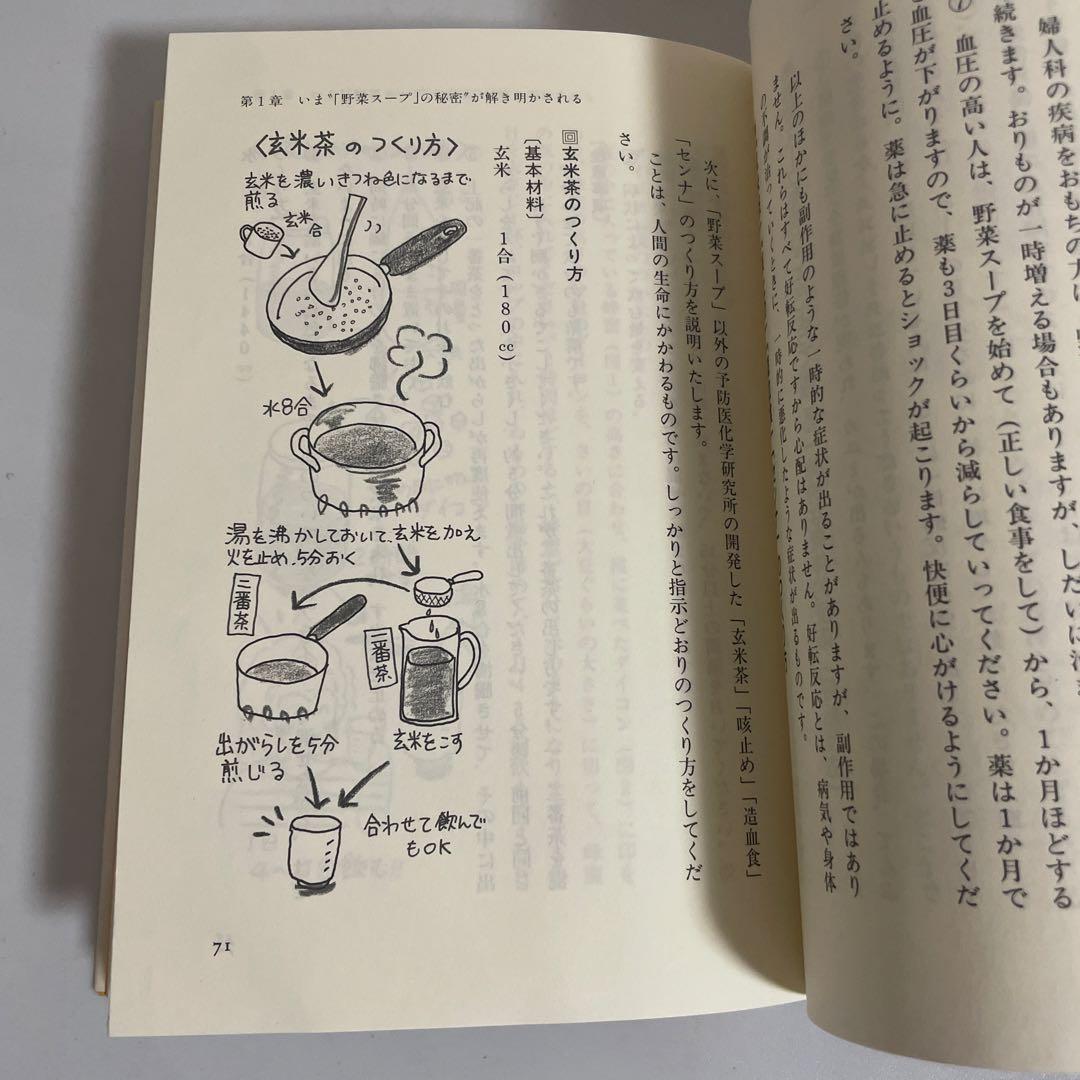 婦人科の疾病をおもちの方は、
続きます。おりものが一時増える場合もありますが、しだいに
⑦ 血圧の高い人は、野菜スープを始めて（正しい食事をして）から、1か月ほどする
と血圧が下がりますので、薬も3日目くらいから減らしていってください。薬は1か月で
止めるように。薬は急に止めるとショックが起こります。快便に心がけるようにしてくだ
さい。
以上のほかにも副作用のような一時的な症状が出ることがありますが、副作用ではあり
ません。これらはすべて好転反応ですから心配はありません。好転反応とは、病気や身体
の不調が治っていくときに、一時的に悪化したような症状が出るものです。
第1章 いま“「野菜スープ」の秘密”が解き明かされる
次に、「野菜スープ」以外の予防医化学研究所の開発した「玄米茶」「咳止め」「造血食」
「センナ」のつくり方を説明いたします。
ことは、人間の生命にかかわるものです。しっかりと指示どおりのつくり方をしてくだ
さい。
回玄米茶のつくり方
［基本材料］
玄米 1合（180cc）
〈玄米茶のつくり方〉
玄米を濃いきつね色になるまで
煎る
玄米
合
水8合
湯を沸かしておいて、玄米を加え
火を止め、5分おく
二番茶
一番茶
出がらしを5分
煎じる
玄米をこす
合わせて飲んで
もOK
71